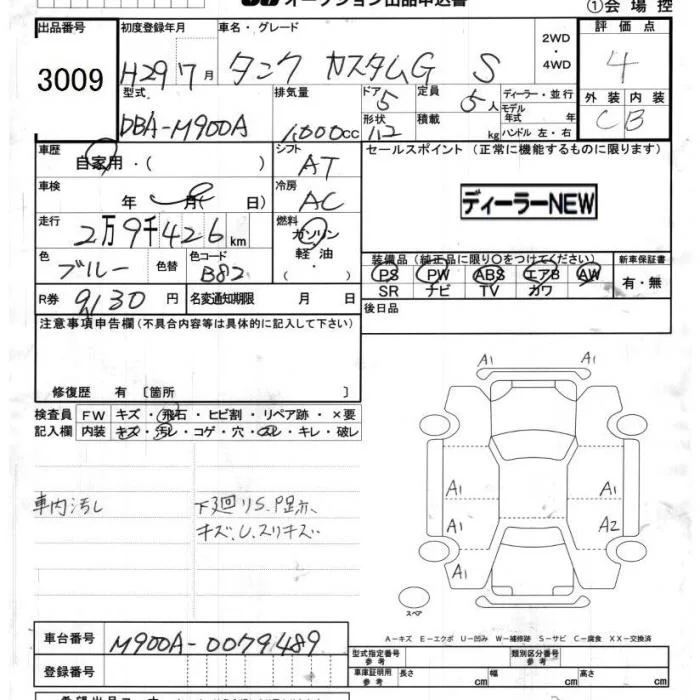 オークション出品申込書
①会場控
出品番号
3009
初度登録年月
H29 7月
車名・グレード
タンク カスタムG S
2WD
・
4WD
評価点
4
型式
DBA-M900A
排気量
1,000cc
ドア 5
形状
定員 5人
積載 kg
ディーラー・並行
モデル年式 年
ハンドル 左・右
外装 内装
C B
車歴
自家用・( )
シフト
AT
セールスポイント (正常に機能するものに限ります)
ディーラーNEW
車検
年 月( 日)
冷房
AC
走行
2万9千426km
燃料
ガソリン
軽油
( ・ )
色
ブルー
色替
色コード
B82
装備品(純正品に限り○をつけてください)
PS PW ABS エアB AW
SR ナビ TV カワ
新車保証書
有・無
R券 9130円
名変通知期限 月 日
後日品
注意事項申告欄(不具合内容等は具体的に記入して下さい)
修復歴 有〔箇所 〕
検査員
記入欄
FW キズ・飛石・ヒビ割・リペア跡・×要
内装 キズ・汚レ・コゲ・穴・スレ・キレ・破レ
車内汚レ
下廻リS.P跡、
キズ.U.スリキズ
A1 A1
A1 A1
A1 A2
A1
スペア
A-キズ E-エクボ U-凹み W-補修跡 S-サビ C-腐食 XX-交換済
車台番号
M900A-0079489
登録番号
型式指定番号
参考
類別区分番号
参考
車庫証明用
参考
長さ cm 幅 cm 高さ cm